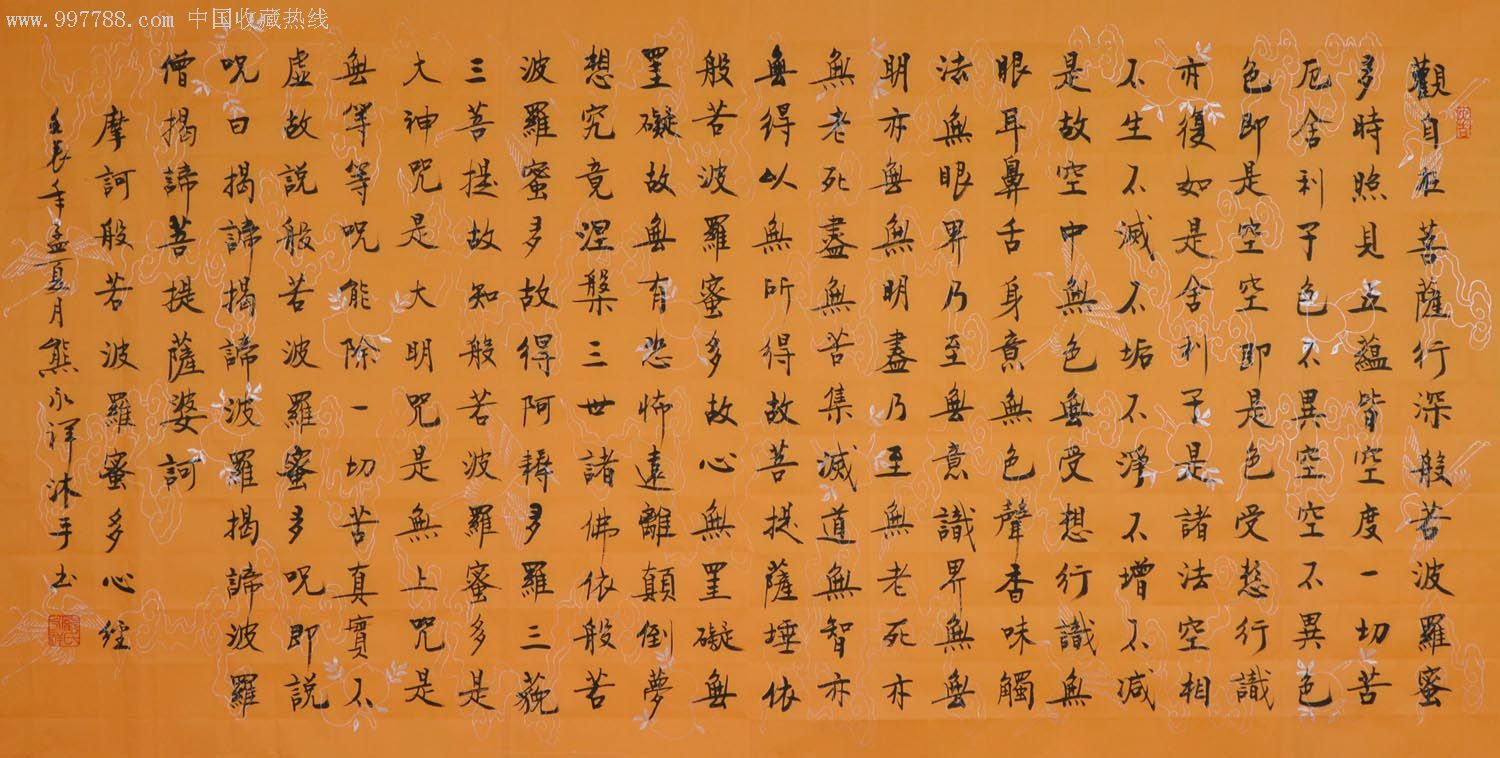 www.997788.com 中国收藏热线
觀自在菩薩行深般若波羅蜜
多時照見五蘊皆空度一切苦
厄舍利子色不異空空不異色
色即是空空即是色受想行識
亦復如是舍利子是諸法空相
不生不滅不垢不淨不增不減
是故空中無色無受想行識無
眼耳鼻舌身意無色聲香味觸
法無眼界乃至無意識界無無
明亦無無明盡乃至無老死亦
無老死盡無苦集滅道無智亦
無得以無所得故菩提薩埵依
般若波羅蜜多故心無罣礙無
罣礙故無有恐怖遠離顛倒夢
想究竟涅槃三世諸佛依般若
波羅蜜多故得阿耨多羅三藐
三菩提故知般若波羅蜜多是
大神咒是大明咒是無上咒是
無等等呪能除一切苦真實不
虛故説般若波羅蜜多呪即説
呪曰揭諦揭諦波羅揭諦波羅
僧揭諦菩提薩婆訶
摩訶般若波羅蜜多心經
壬辰年孟夏月熊永祥沐手书